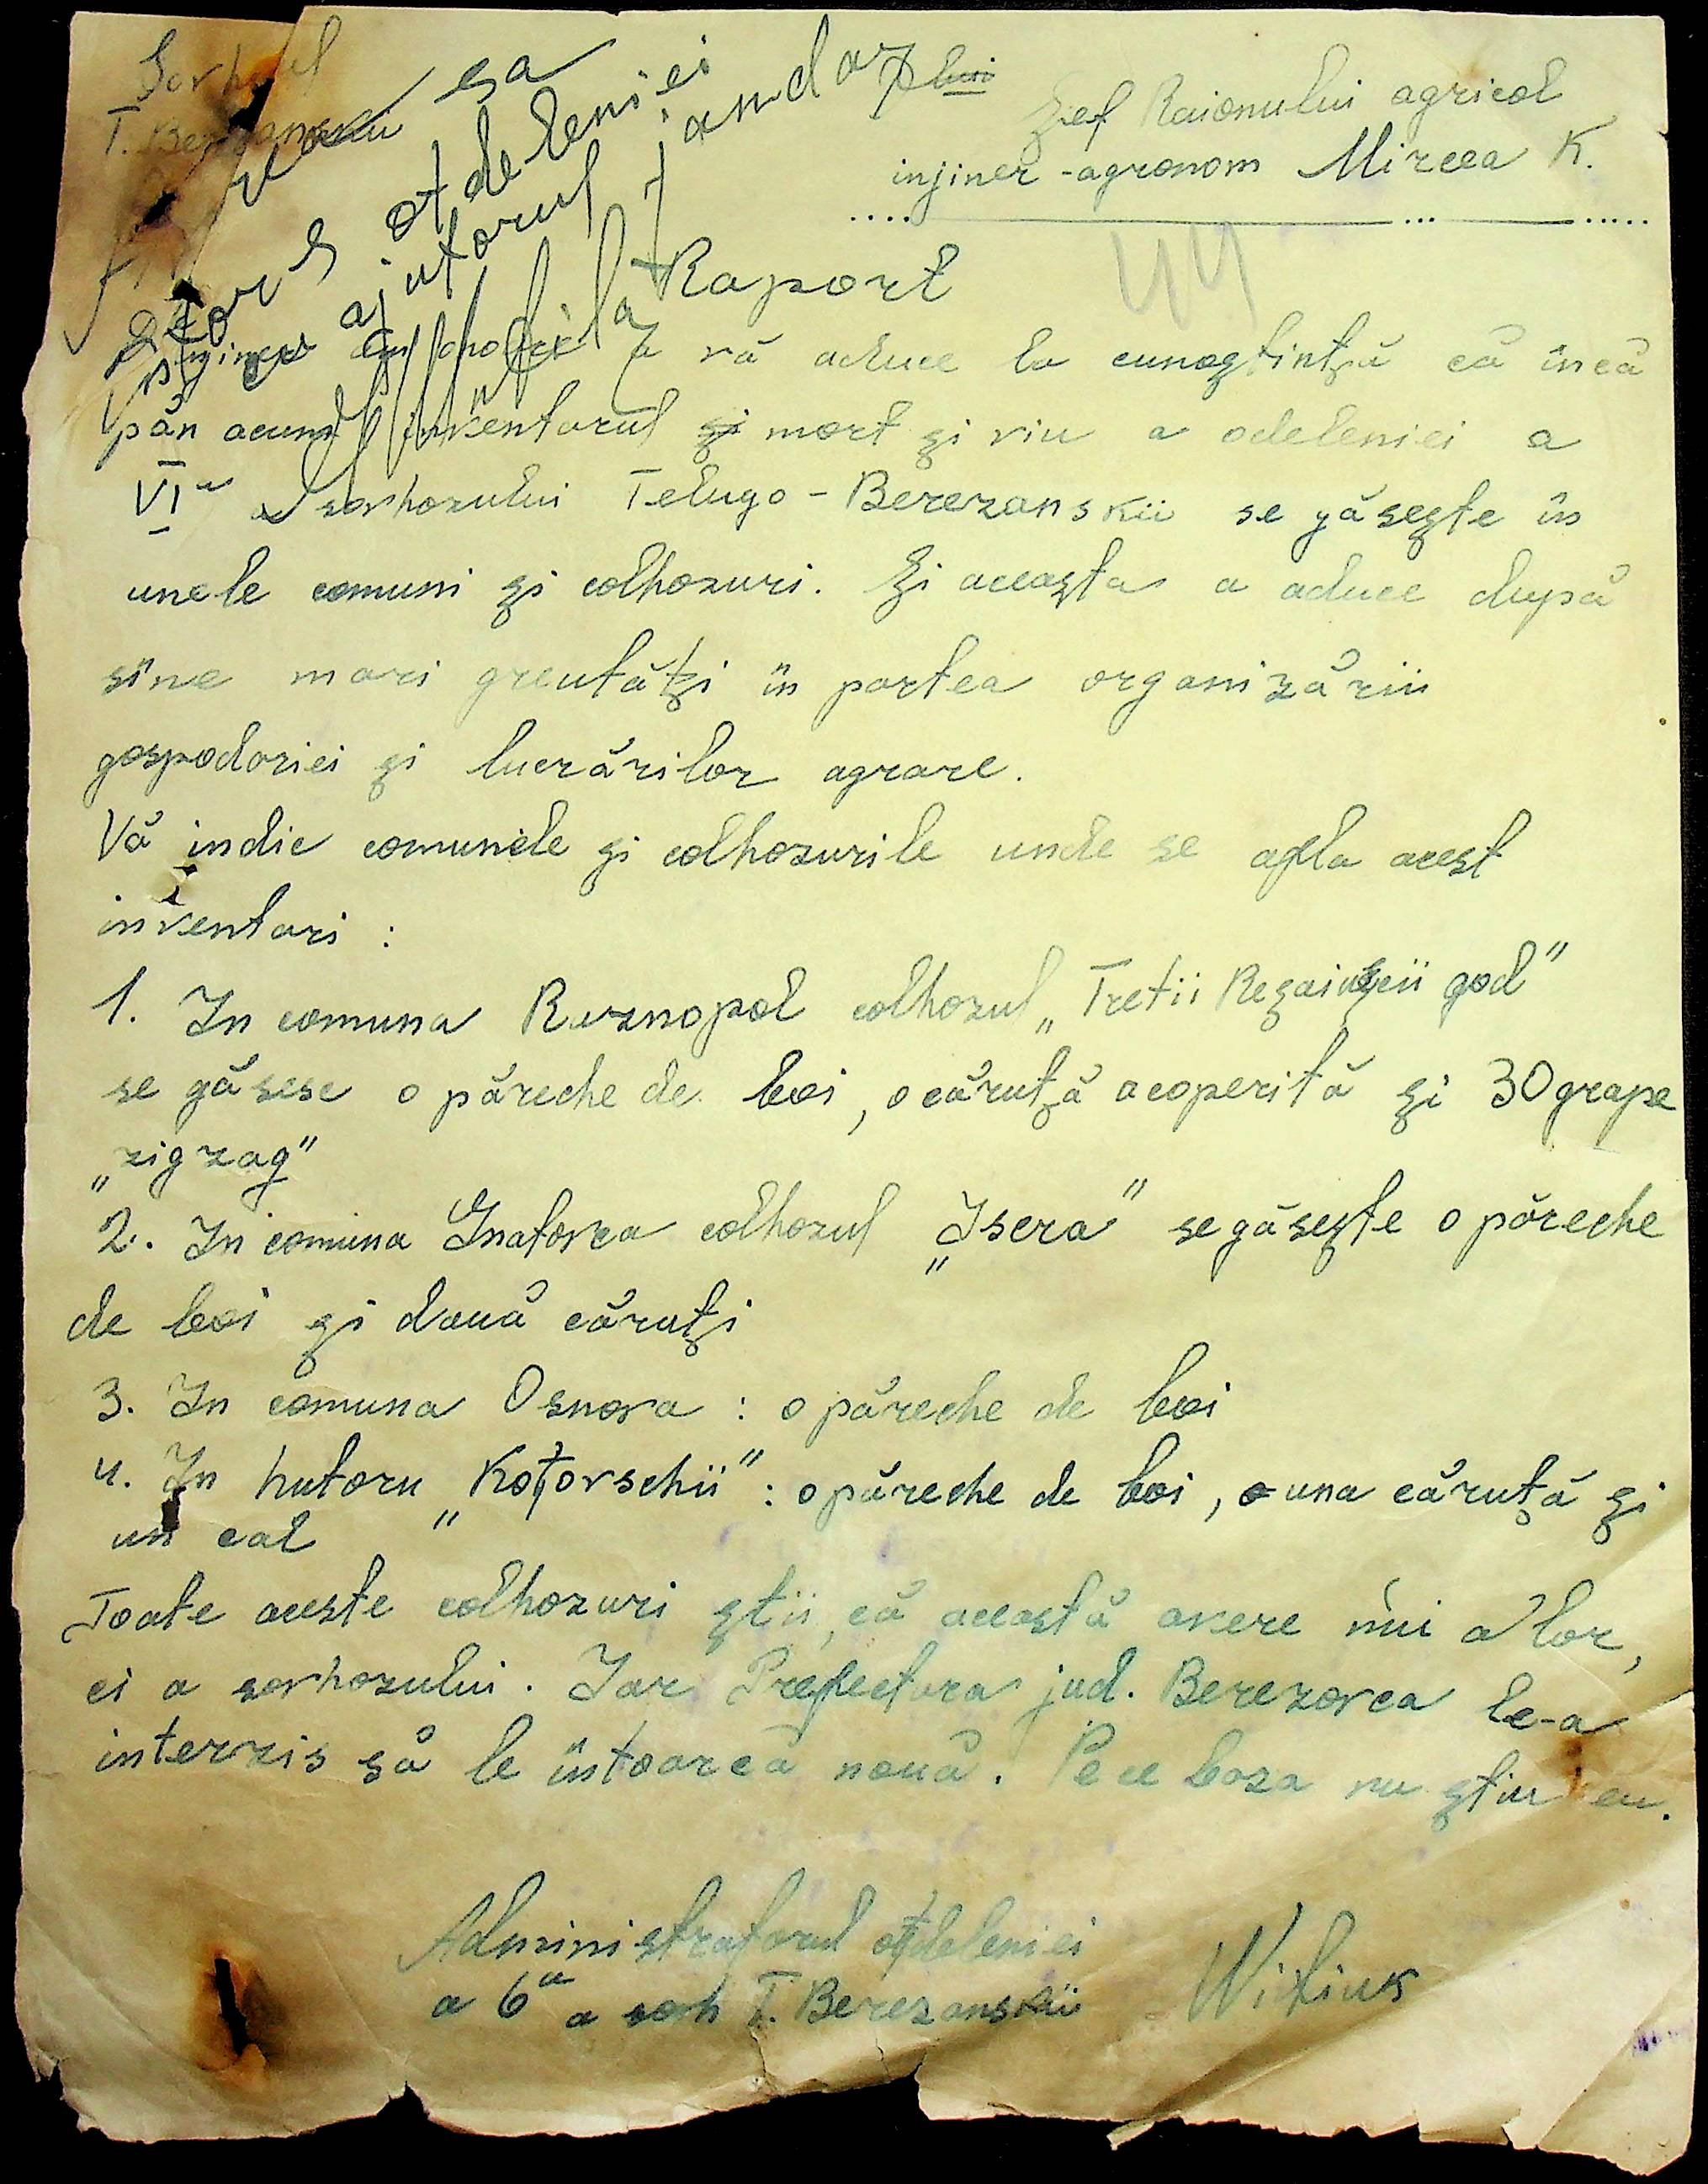 Sovhozul
T. Berezanskii
Șef Raionului agricol
injiner-agronom Mircea K.
44
Raport
vă aduce la cunoștintșă că încă
păn acum inventarul și mort și viu a odeleniei a
VI a sovhozului Telugo-Berezanskii se găsește în
unele comuni și colhozuri. Și aceașta a aduce după
sine mari greutătși în partea organizării
gospodoriei și lucrărilor agrare.
Vă indic comunele și colhozurile unde se afla acest
inventari :
1. In comuna Ruznopol colhozul „Tretii god"
se găsesc o păreche de boi, o cărutșă acoperită și 30 grape
„zigzag"
2. In comuna Gnatovca colhozul „Iscra" se găsește o păreche
de boi și două cărutși
3. In comuna Osnova : o păreche de boi
4. In hutoru „Kotovschii" : o păreche de boi, una căruță și
un cal
Toate aceste colhozuri știi, că această avere nui a lor,
ci a sovhozului. Iar Prefectura jud. Berezovca le-a
interzis să le întoarcă nouă. Pe ce baza nu știu eu.
Administratorul otdeleniei
a 6a a sovh T. Berezanskii Witiuk
otdeleniei
ajutorul
jandar